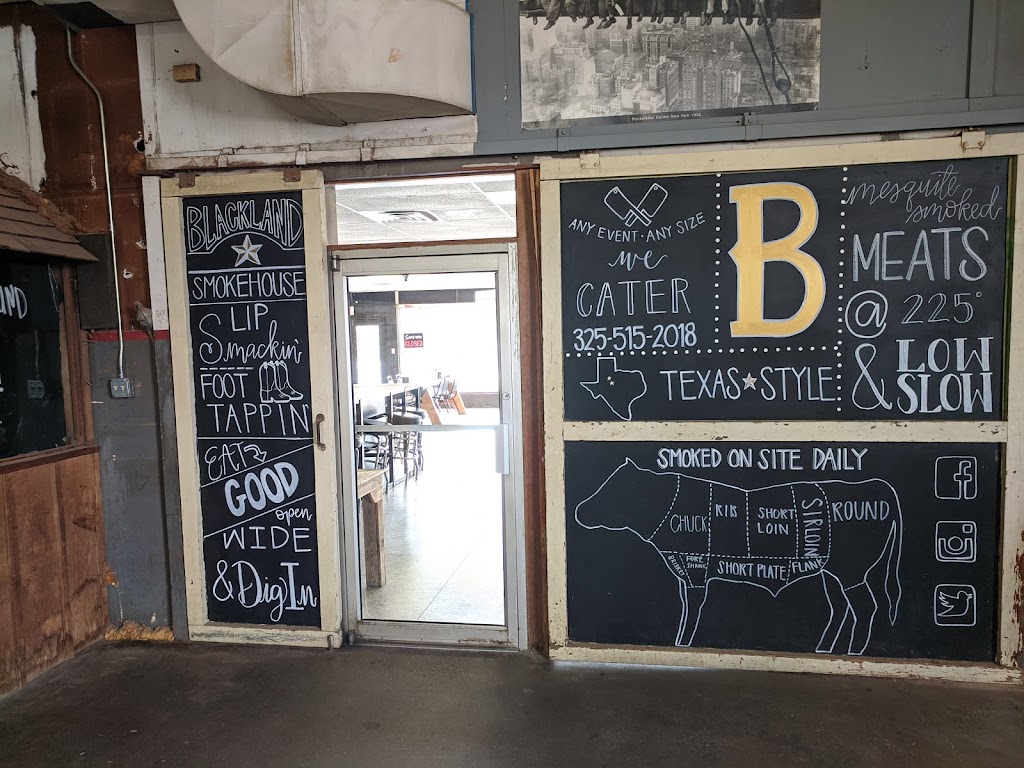 Rockefeller Center New York 1932
BLACKLAND
SMOKEHOUSE
LIP
Smackin'
FOOT
TAPPIN
EAT
GOOD
open
WIDE
& Dig In
CLOSED
ANY EVENT · ANY SIZE
we
CATER
325-515-2018
B
mesquite
smoked
MEATS
@ 225°
& LOW
SLOW
TEXAS STYLE
SMOKED ON SITE DAILY
CHUCK
RIB
SHORT
LOIN
SIRLOIN
ROUND
BRISKET
FORE
SHANK
SHORT PLATE
FLANK
f